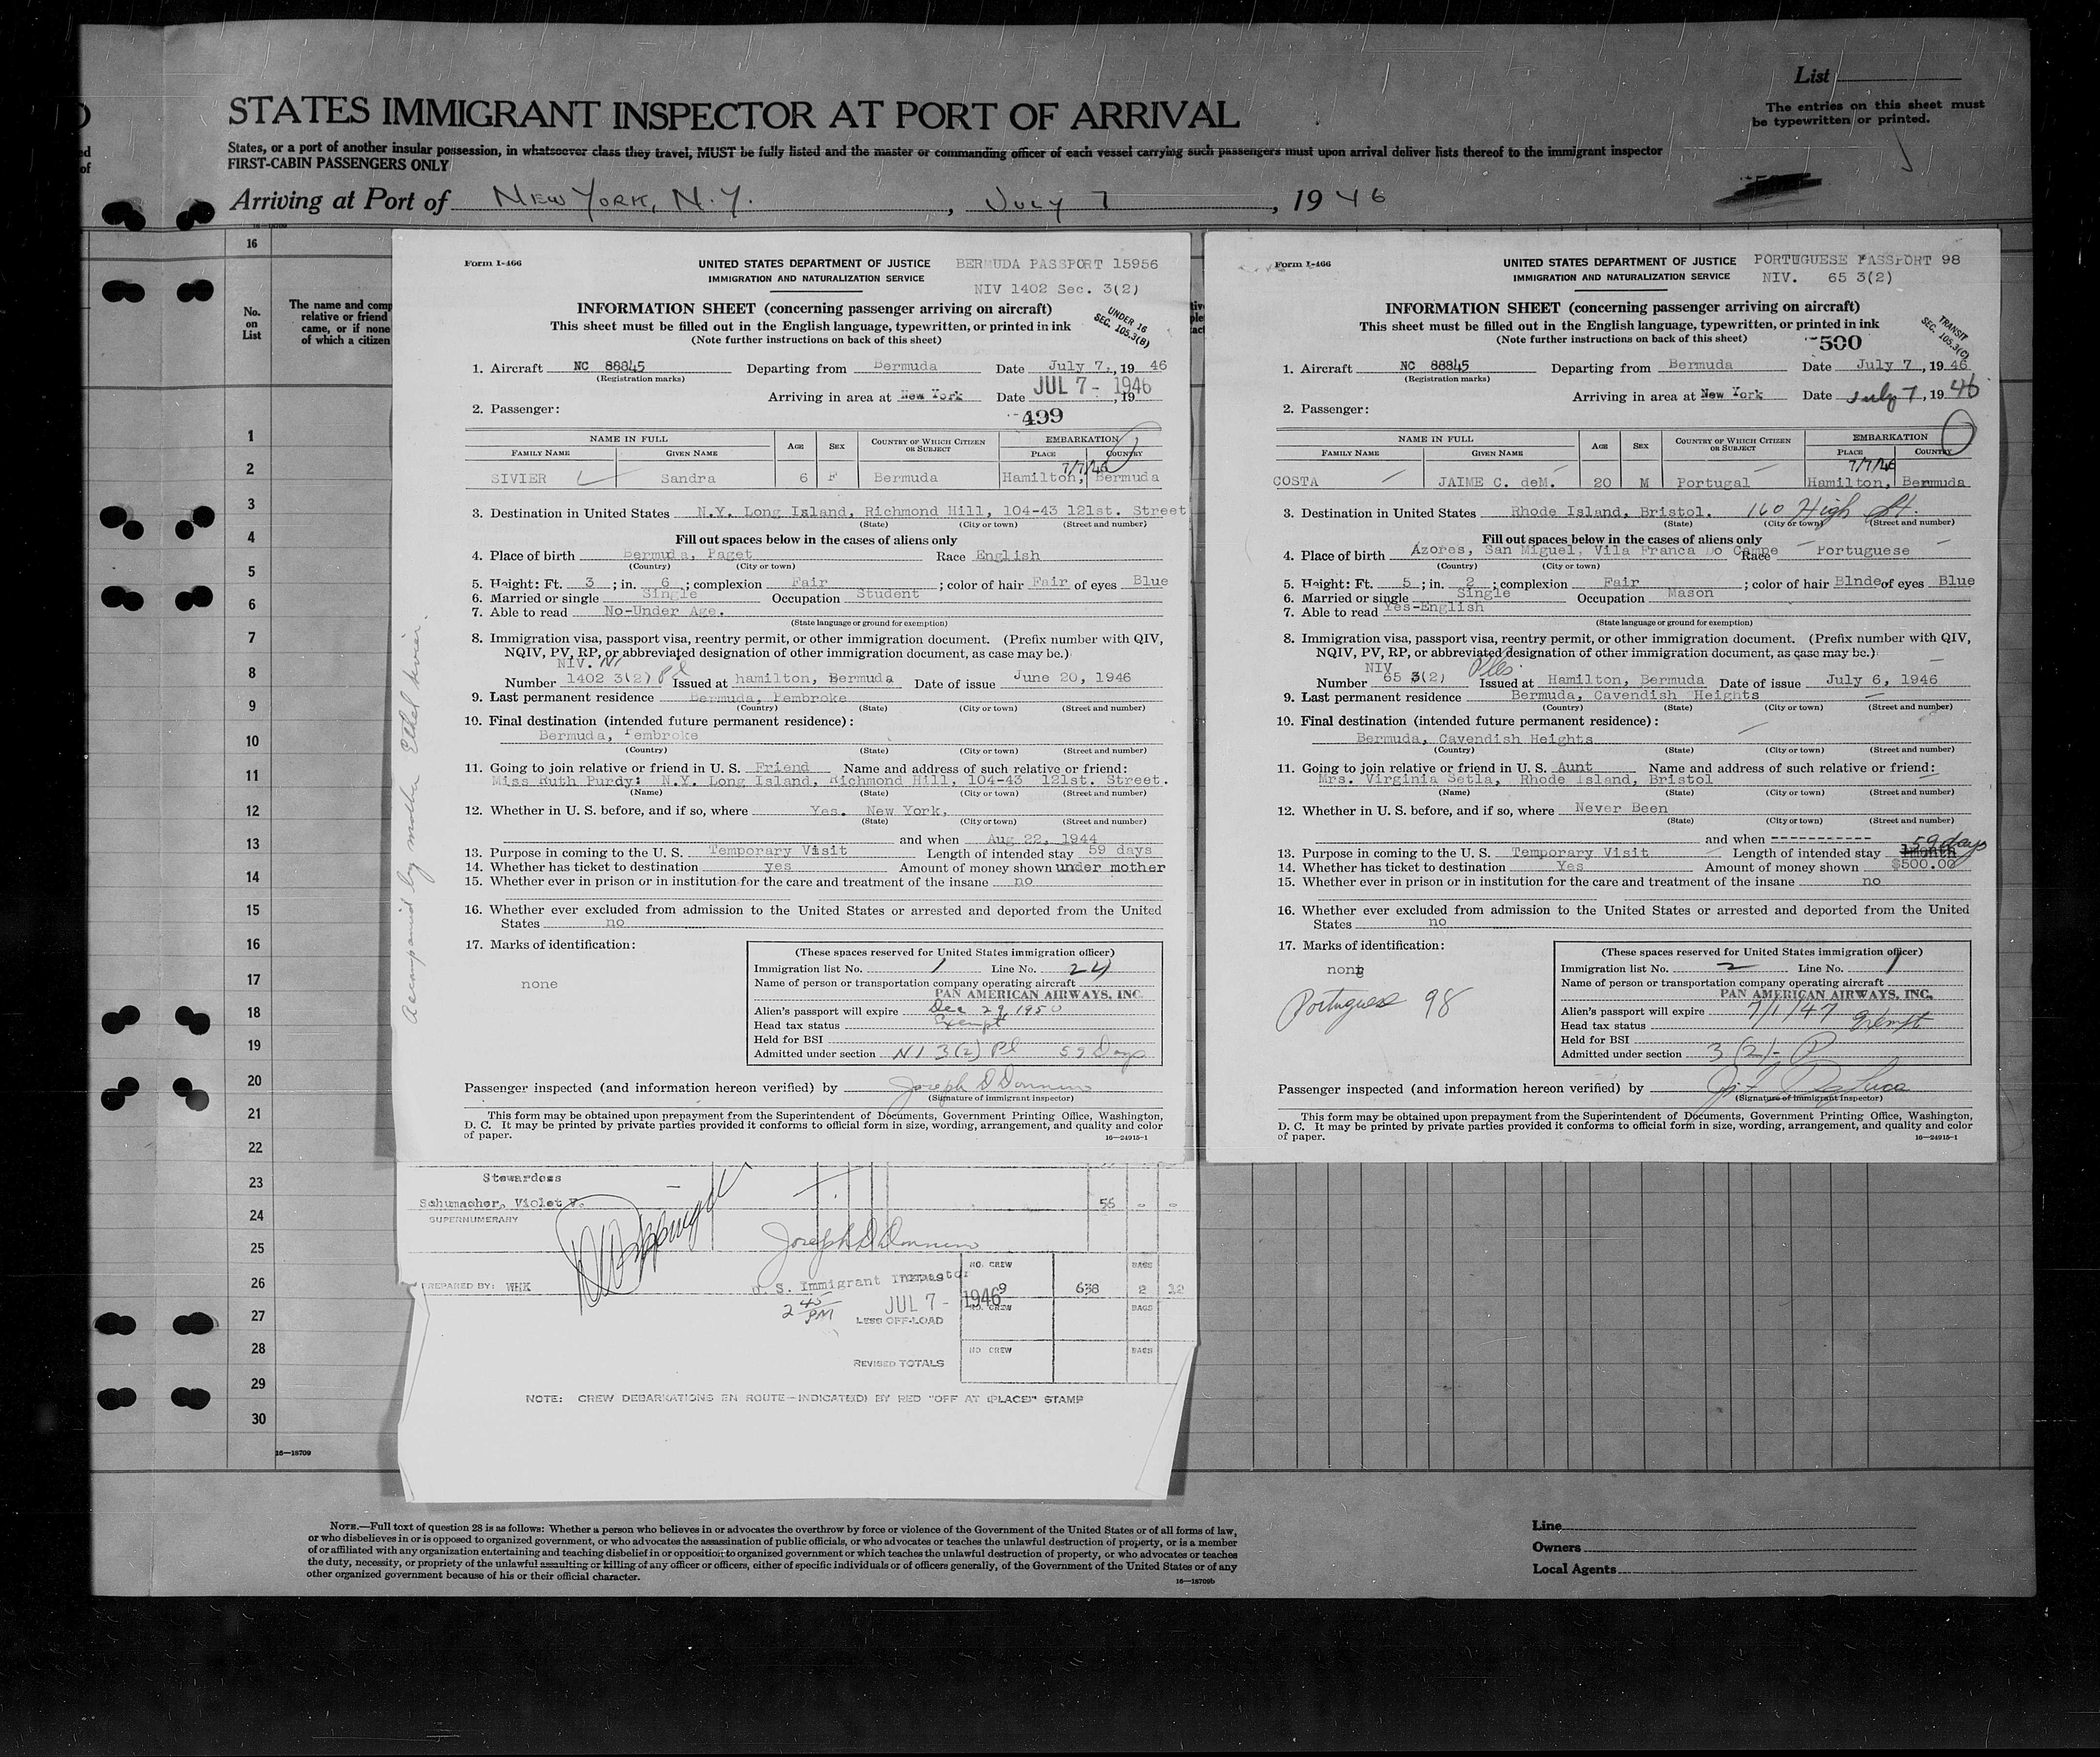 List
The entries on this sheet must
be typewritten or printed.
STATES IMMIGRANT INSPECTOR AT PORT OF ARRIVAL
States, or a port of another insular possession, in whatsoever class they travel, MUST be fully listed and the master or commanding officer of each vessel carrying such passengers must upon arrival deliver lists thereof to the immigrant inspector
FIRST-CABIN PASSENGERS ONLY
Arriving at Port of NEW YORK, N.Y., JULY 7, 1946
16
No.
on
List
The name and comp
relative or friend
came, or if none
of which a citizen
1
2
3
4
5
6
7
8
9
10
11
12
13
14
15
16
17
18
19
20
21
22
23
24
25
26
27
28
29
30
16—18709
Form I-466
UNITED STATES DEPARTMENT OF JUSTICE BERMUDA PASSPORT 15956
IMMIGRATION AND NATURALIZATION SERVICE
NIV 1402 Sec. 3(2)
INFORMATION SHEET (concerning passenger arriving on aircraft)
UNDER 16
SEC. 105.3(B)
This sheet must be filled out in the English language, typewritten, or printed in ink
(Note further instructions on back of this sheet)
1. Aircraft NC 88845 Departing from Bermuda Date July 7, 1946
(Registration marks)
JUL 7 - 1946
Arriving in area at New York Date , 19
2. Passenger:
499
NAME IN FULL AGE SEX COUNTRY OF WHICH CITIZEN OR SUBJECT EMBARKATION
FAMILY NAME GIVEN NAME PLACE COUNTRY
7/7/46
SIVIER Sandra 6 F Bermuda Hamilton, Bermuda
3. Destination in United States N.Y. Long Island, Richmond Hill, 104-43 121st. Street
(State) (City or town) (Street and number)
Fill out spaces below in the cases of aliens only
4. Place of birth Bermuda, Paget Race English
(Country) (City or town)
5. Height: Ft. 3; in. 6; complexion Fair; color of hair Fair of eyes Blue
6. Married or single Single Occupation Student
7. Able to read No-Under Age.
(State language or ground for exemption)
8. Immigration visa, passport visa, reentry permit, or other immigration document. (Prefix number with QIV,
NQIV, PV, RP, or abbreviated designation of other immigration document, as case may be.)
NIV.
Number 1402 3(2) Issued at hamilton, Bermuda Date of issue June 20, 1946
9. Last permanent residence Bermuda, Pembroke
(Country) (State) (City or town) (Street and number)
10. Final destination (intended future permanent residence):
Bermuda, Pembroke
(Country) (State) (City or town) (Street and number)
11. Going to join relative or friend in U. S. Friend Name and address of such relative or friend:
Miss Ruth Purdy: N.Y. Long Island, Richmond Hill, 104-43 121st. Street.
(Name) (State) (City or town) (Street and number)
12. Whether in U. S. before, and if so, where Yes. New York,
(State) (City or town) (Street and number)
and when Aug 22, 1944
13. Purpose in coming to the U. S. Temporary Visit Length of intended stay 59 days
14. Whether has ticket to destination yes Amount of money shown under mother
15. Whether ever in prison or in institution for the care and treatment of the insane no
16. Whether ever excluded from admission to the United States or arrested and deported from the United
States no
17. Marks of identification:
none
(These spaces reserved for United States immigration officer)
Immigration list No. 1 Line No. 24
Name of person or transportation company operating aircraft
PAN AMERICAN AIRWAYS, INC.
Alien's passport will expire Dec 29, 1950
Head tax status Exempt
Held for BSI
Admitted under section NI 3(2) Pl 59 Days
Passenger inspected (and information hereon verified) by
(Signature of immigrant inspector)
This form may be obtained upon prepayment from the Superintendent of Documents, Government Printing Office, Washington,
D. C. It may be printed by private parties provided it conforms to official form in size, wording, arrangement, and quality and color
of paper.
16—24915-1
Accompanied by mother Ethel Sivier.
Form I-466
UNITED STATES DEPARTMENT OF JUSTICE PORTUGUESE PASSPORT 98
IMMIGRATION AND NATURALIZATION SERVICE NIV. 65 3(2)
INFORMATION SHEET (concerning passenger arriving on aircraft)
TRANSIT
SEC. 105.3(C)
This sheet must be filled out in the English language, typewritten, or printed in ink
(Note further instructions on back of this sheet)
500
1. Aircraft NC 88845 Departing from Bermuda Date July 7, 1946
(Registration marks)
Arriving in area at New York Date July 7, 1946
2. Passenger:
NAME IN FULL AGE SEX COUNTRY OF WHICH CITIZEN OR SUBJECT EMBARKATION
FAMILY NAME GIVEN NAME PLACE COUNTRY
7/7/46
COSTA JAIME C. deM. 20 M Portugal Hamilton, Bermuda
3. Destination in United States Rhode Island, Bristol. 160 High St.
(State) (City or town) (Street and number)
Fill out spaces below in the cases of aliens only
4. Place of birth Azores, San Miguel, Vila Franca Do Campe Race Portuguese
(Country) (City or town)
5. Height: Ft. 5; in. 2; complexion Fair; color of hair Blnde of eyes Blue
6. Married or single Single Occupation Mason
7. Able to read Yes-English
(State language or ground for exemption)
8. Immigration visa, passport visa, reentry permit, or other immigration document. (Prefix number with QIV,
NQIV, PV, RP, or abbreviated designation of other immigration document, as case may be.)
NIV
Number 65 3(2) Issued at Hamilton, Bermuda Date of issue July 6, 1946
9. Last permanent residence Bermuda, Cavendish Heights
(Country) (State) (City or town) (Street and number)
10. Final destination (intended future permanent residence):
Bermuda, Cavendish Heights
(Country) (State) (City or town) (Street and number)
11. Going to join relative or friend in U. S. Aunt Name and address of such relative or friend:
Mrs. Virginia Setla, Rhode Island, Bristol
(Name) (State) (City or town) (Street and number)
12. Whether in U. S. before, and if so, where Never Been
(State) (City or town) (Street and number)
and when -----------
59 days
13. Purpose in coming to the U. S. Temporary Visit Length of intended stay 1month
14. Whether has ticket to destination Yes Amount of money shown $500.00
15. Whether ever in prison or in institution for the care and treatment of the insane no
16. Whether ever excluded from admission to the United States or arrested and deported from the United
States no
17. Marks of identification:
none
Portuguese 98
(These spaces reserved for United States immigration officer)
Immigration list No. 2 Line No. 1
Name of person or transportation company operating aircraft
PAN AMERICAN AIRWAYS, INC.
Alien's passport will expire 7/1/47
Head tax status Exempt
Held for BSI
Admitted under section 3(2)- P
Passenger inspected (and information hereon verified) by
(Signature of immigrant inspector)
This form may be obtained upon prepayment from the Superintendent of Documents, Government Printing Office, Washington,
D. C. It may be printed by private parties provided it conforms to official form in size, wording, arrangement, and quality and color
of paper.
16—24915-1
Stewardess
Schumacher, Violet V. 56 - -
SUPERNUMERARY
PREPARED BY: WHK
U. S. Immigrant Inspector
2 45 PM
JUL 7 - 1946
NO. CREW 9 638 BAGS 2 12
LESS OFF-LOAD NO. CREW BAGS
REVISED TOTALS NO CREW BAGS
NOTE: CREW DEBARKATIONS EN ROUTE—INDICATED BY RED "OFF AT (PLACE)" STAMP
NOTE.—Full text of question 28 is as follows: Whether a person who believes in or advocates the overthrow by force or violence of the Government of the United States or of all forms of law,
or who disbelieves in or is opposed to organized government, or who advocates the assassination of public officials, or who advocates or teaches the unlawful destruction of property, or is a member
of or affiliated with any organization entertaining and teaching disbelief in or opposition to organized government or which teaches the unlawful destruction of property, or who advocates or teaches
the duty, necessity, or propriety of the unlawful assaulting or killing of any officer or officers, either of specific individuals or of officers generally, of the Government of the United States or of any
other organized government because of his or their official character.
16—18709b
Line
Owners
Local Agents